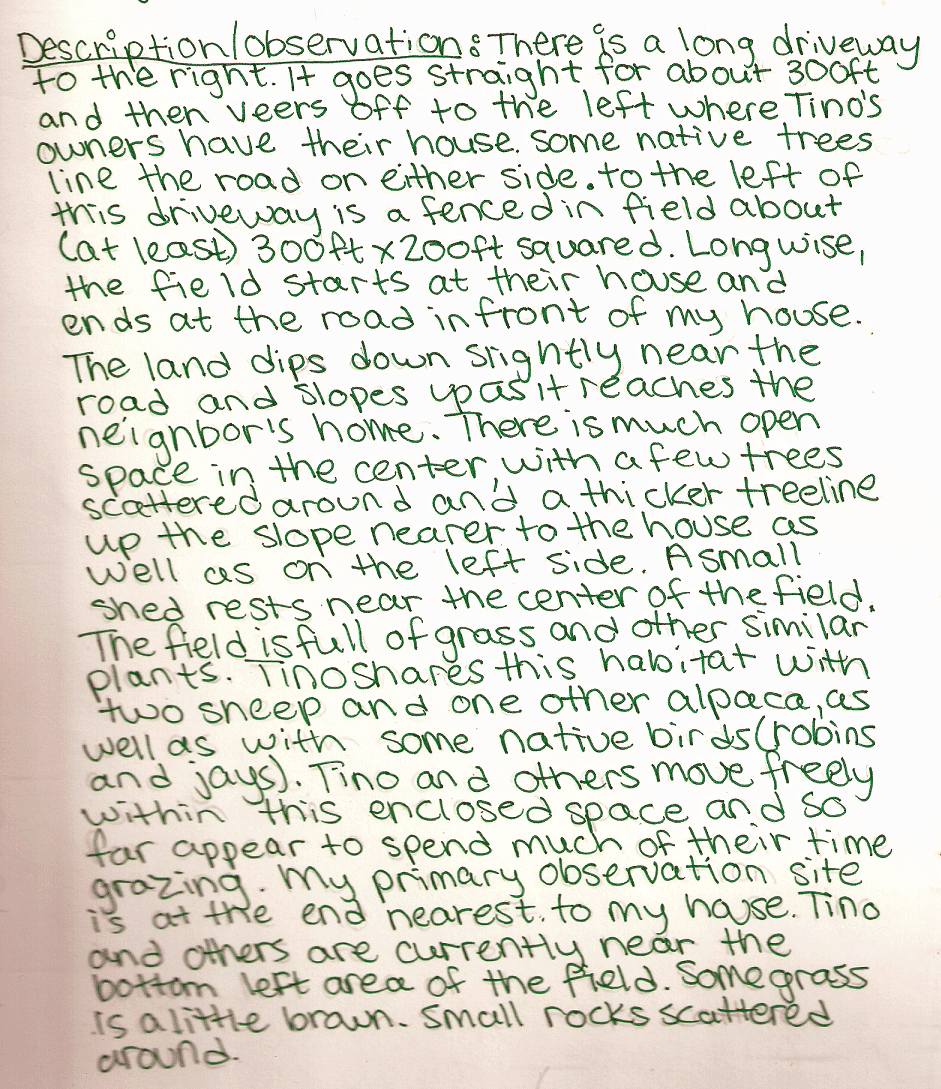 Description/observation: There is a long driveway
to the right. It goes straight for about 300ft
and then veers off to the left where Tino's
owners have their house. Some native trees
line the road on either side. to the left of
this driveway is a fenced in field about
(at least) 300ft x 200ft squared. Longwise,
the field starts at their house and
ends at the road infront of my house.
The land dips down slightly near the
road and slopes up as it reaches the
neighbor's home. There is much open
space in the center with a few trees
scattered around and a thicker treeline
up the slope nearer to the house as
well as on the left side. A small
shed rests near the center of the field.
The field is full of grass and other similar
plants. Tino shares this habitat with
two sheep and one other alpaca, as
well as with some native birds (robins
and jays). Tino and others move freely
within this enclosed space and so
far appear to spend much of their time
grazing. My primary observation site
is at the end nearest to my house. Tino
and others are currently near the
bottom left area of the field. Some grass
is a little brown. Small rocks scattered
around.